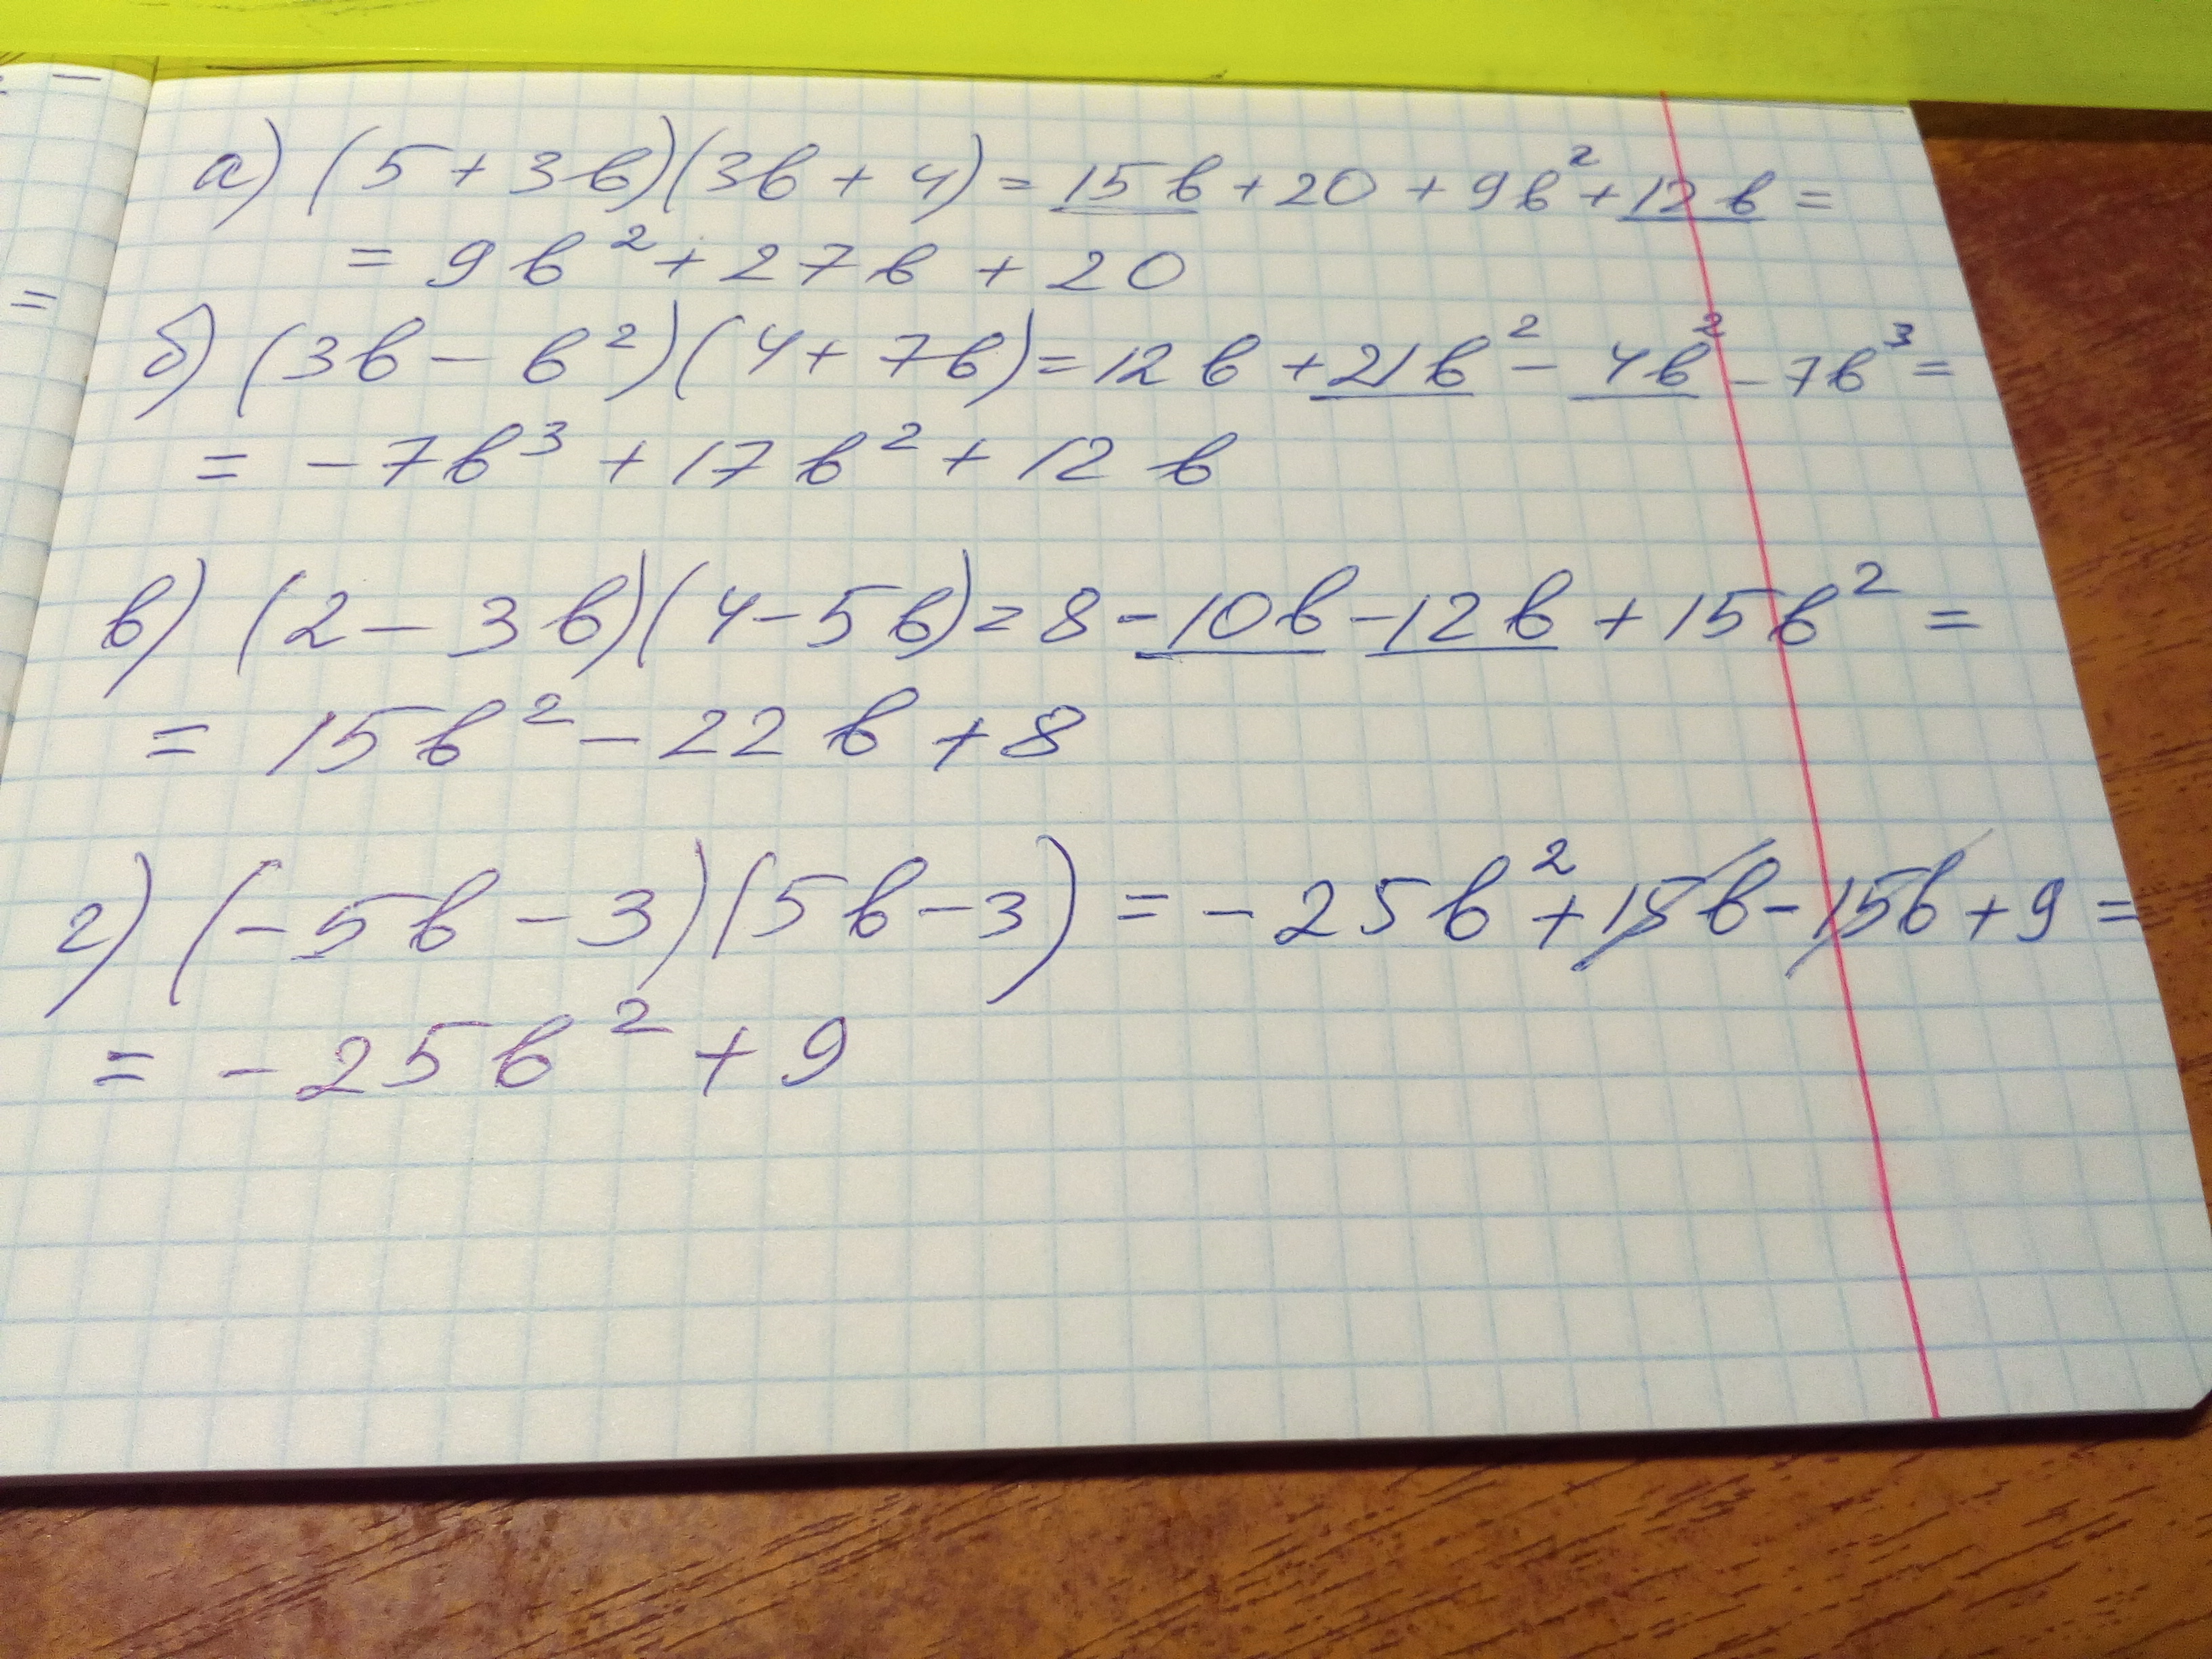 а) (5 + 3в)(3в + 4) = 15в + 20 + 9в² + 12в =
= 9в² + 27в + 20
б) (3в − в²)(4 + 7в) = 12в + 21в² − 4в² − 7в³ =
= −7в³ + 17в² + 12в
в) (2 − 3в)(4 − 5в) = 8 − 10в − 12в + 15в² =
= 15в² − 22в + 8
г) (−5в − 3)(5в − 3) = −25в² + 15в − 15в + 9 =
= −25в² + 9